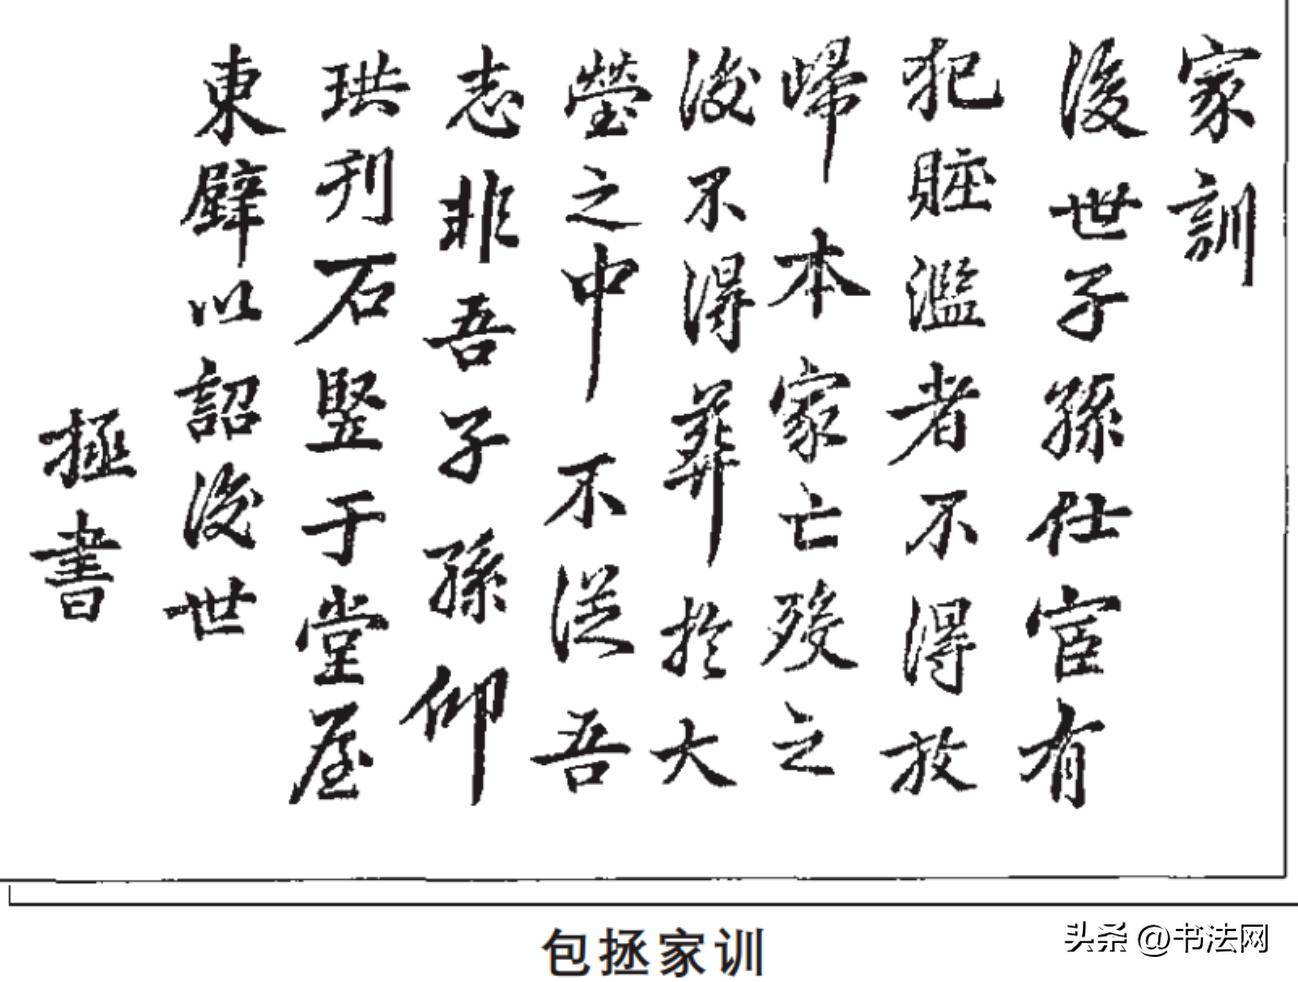 家訓
後世子孫仕宦有
犯賍濫者不得放
歸本家亡殁之
後不得葬於大
塋之中不從吾
志非吾子孫仰
珙刊石竪于堂屋
東壁以詔後世
拯書
包拯家训
头条 @书法网